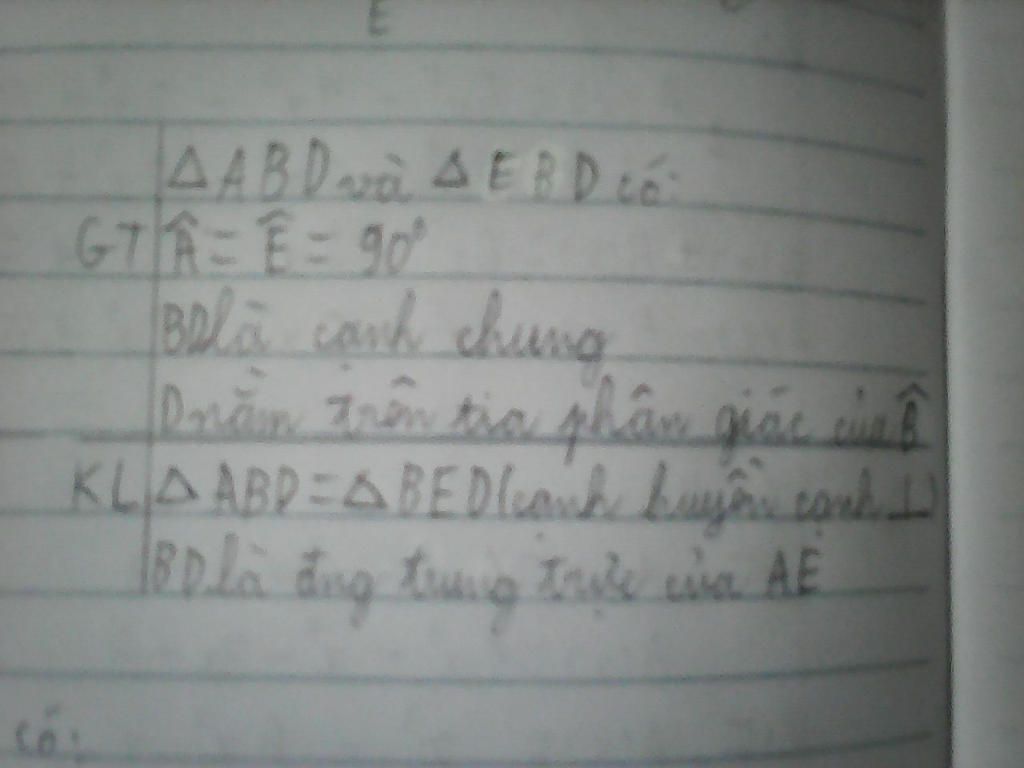 E
△ABD và △EBD có:
GT Â = Ê = 90°
BD là cạnh chung
D nằm trên tia phân giác của B̂
KL △ABD = △BED (cạnh huyền cạnh ⊥)
BD là đng trung trực của AE
có: